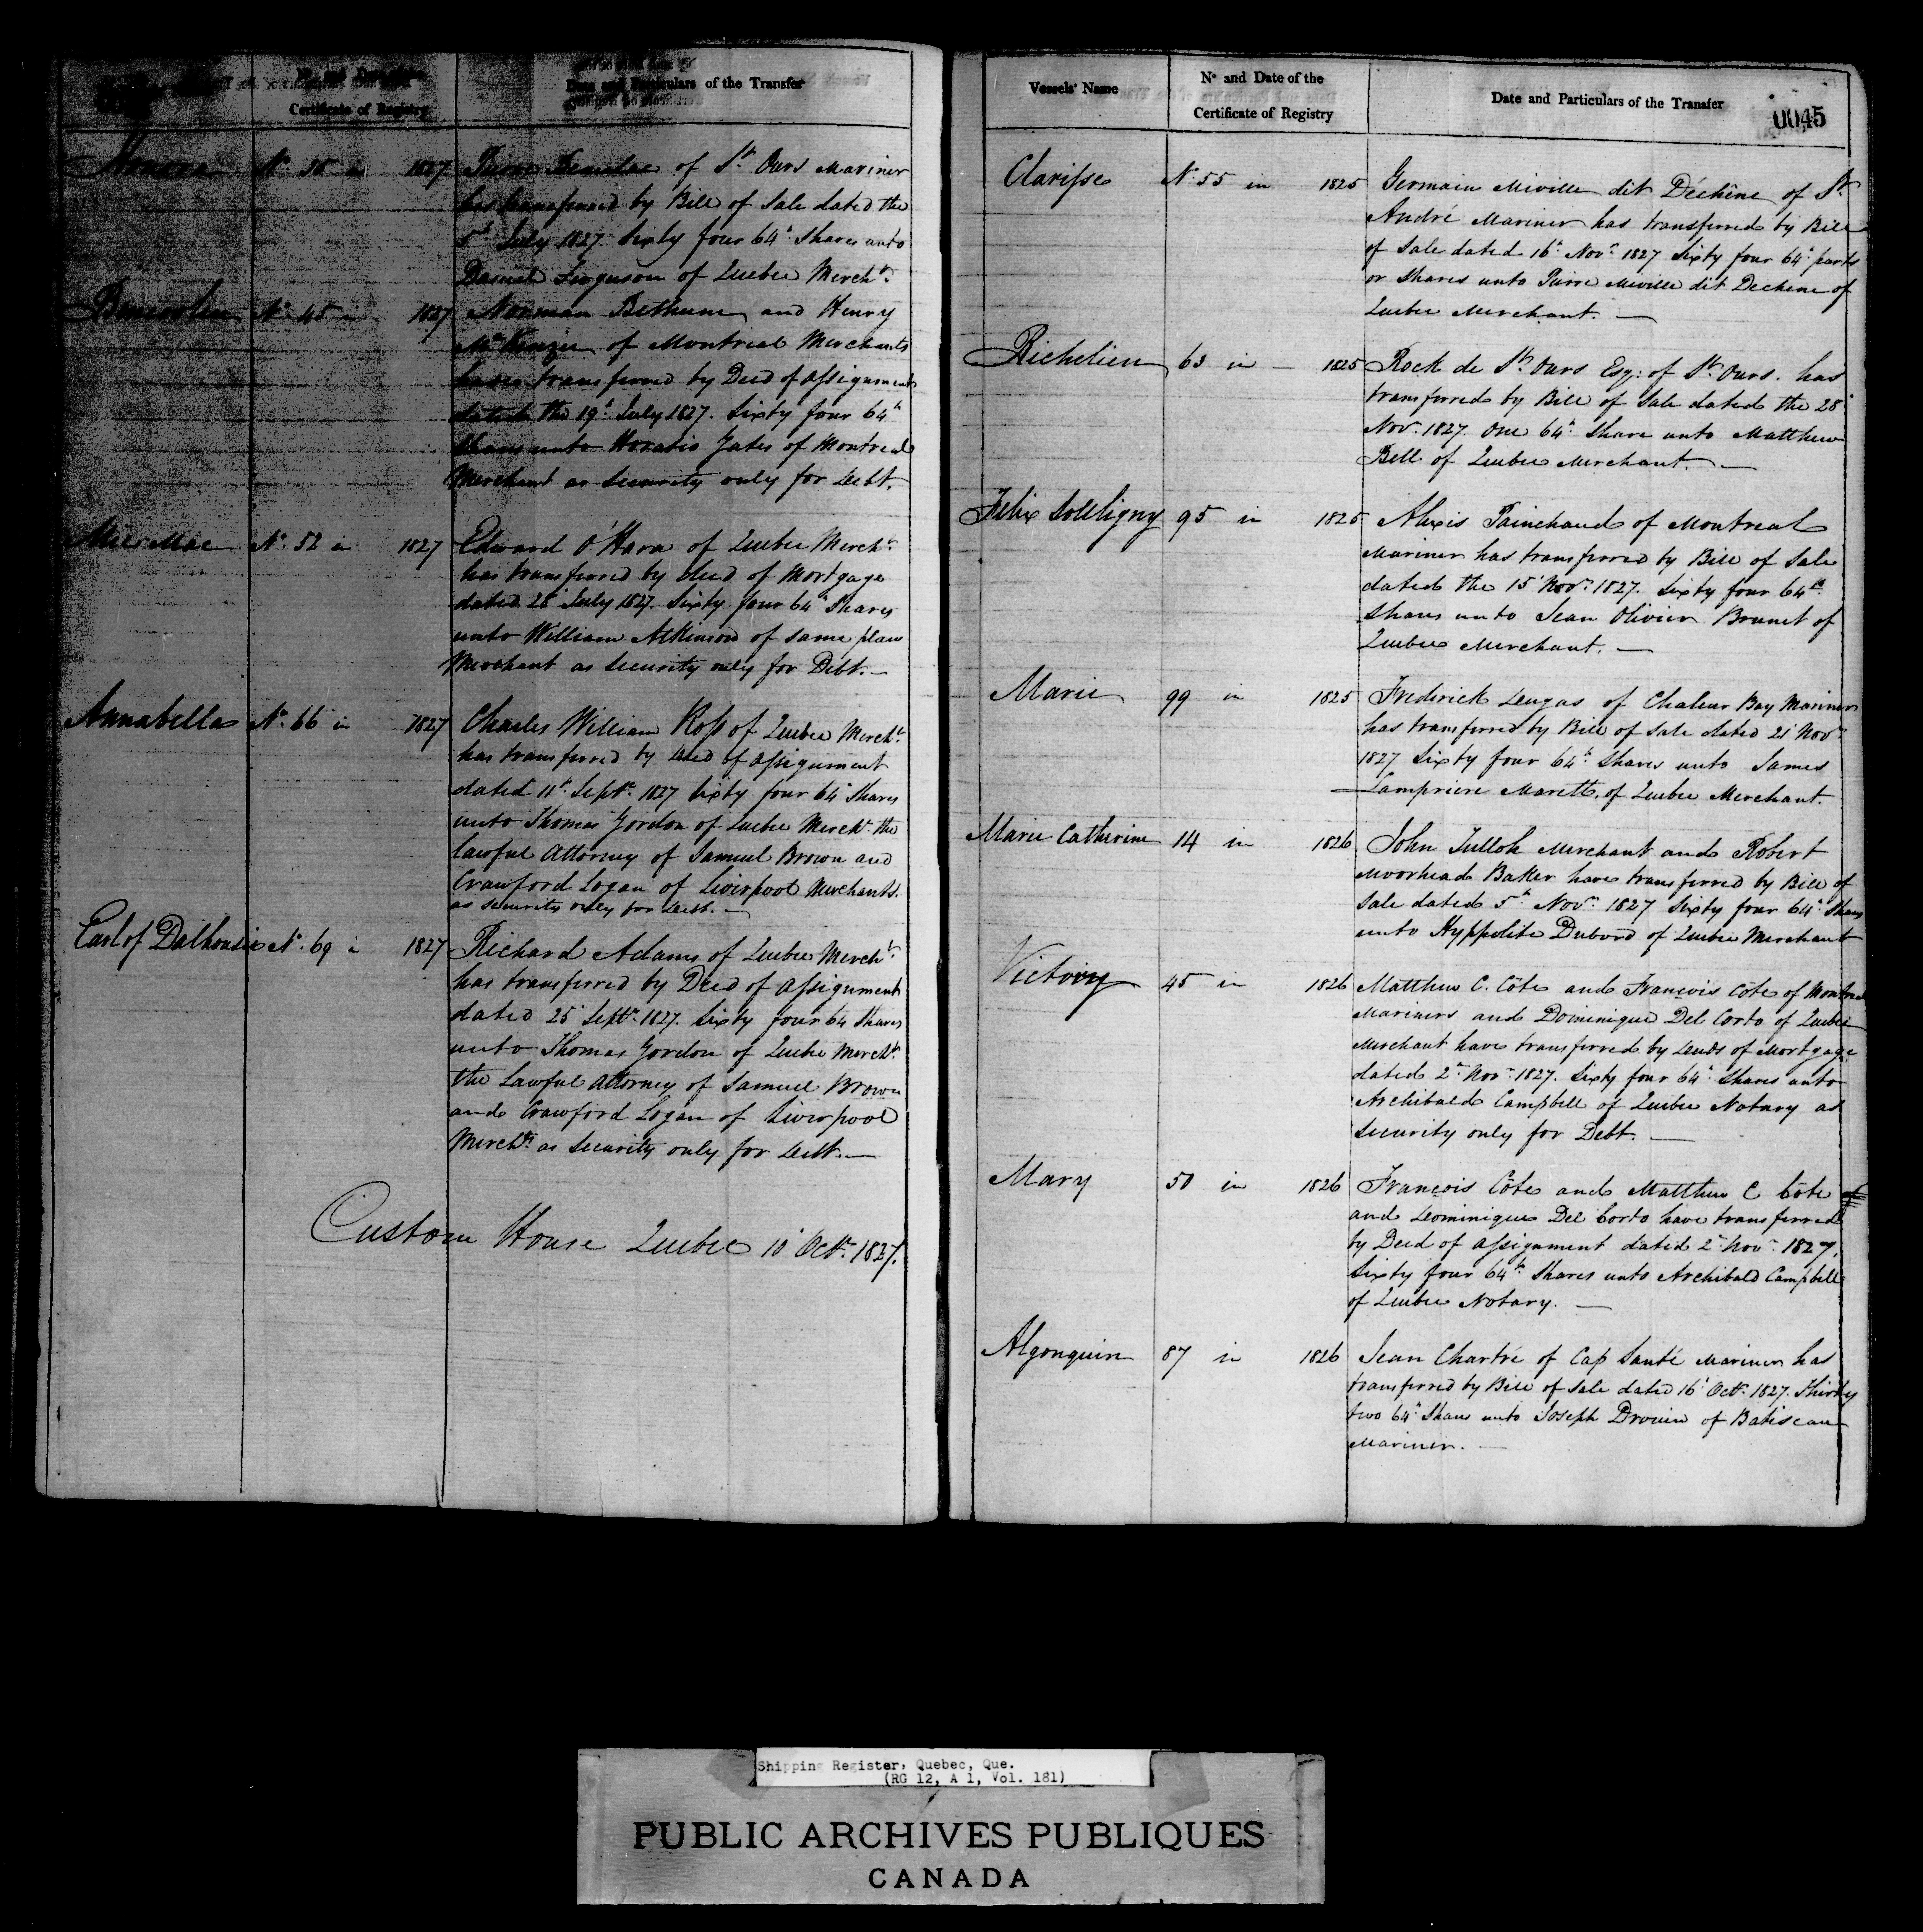 Certificate of Registry
Date and Particulars of the Transfer
No. 36 in 1827 Pierre of St. Ours Mariner
has transferred by Bill of Sale dated the
5th July 1827. Sixty four 64th Shares unto
Daniel Ferguson of Quebec Mercht.
No. 45 in 1827 Norman Bethune and Henry
McKenzie of Montreal Merchants
have transferred by Deed of Assignment
dated the 19th July 1827. Sixty four 64th
Shares unto Horatio Gates of Montreal
Merchant as Security only for Debt.
Mic Mac No. 52 in 1827 Edward O'Hara of Quebec Mercht.
has transferred by deed of Mortgage
dated 28 July 1827. Sixty four 64th Shares
unto William Atkinson of same place
Merchant as Security only for Debt.—
Annabella No. 66 in 1827 Charles William Ross of Quebec Mercht.
has transferred by Deed of Assignment
dated 11th Septr. 1827 Sixty four 64th Shares
unto Thomas Gordon of Quebec Mercht. the
lawful Attorney of Samuel Brown and
Crawford Logan of Liverpool Merchants.
as security only for Debt.—
Earl of Dalhousie No. 69 in 1827 Richard Adams of Quebec Mercht.
has transferred by Deed of Assignment
dated 25 Septr. 1827. Sixty four 64 Shares
unto Thomas Gordon of Quebec Mercht.
the Lawful Attorney of Samuel Brown
and Crawford Logan of Liverpool
Merchts. as Security only for Debt.—
Custom House Quebec 10th Octr. 1827.
Vessels' Name
No and Date of the
Certificate of Registry
Date and Particulars of the Transfer
0045
Clarisse No. 55 in 1825 Germain Miville dit Déchêne of St.
André Mariner has transferred by Bill
of Sale dated 16th Novr. 1827 Sixty four 64th parts
or Shares unto Pierre Miville dit Dechene of
Quebec Merchant.—
Richelieu 63 in — 1825 Rock de St. Ours Esq: of St. Ours. has
transferred by Bill of Sale dated the 28
Nov. 1827. One 64th Share unto Matthew
Bell of Quebec Merchant.—
Felix Souligny 95 in 1825 Alexis Painchaud of Montreal
Mariner has transferred by Bill of Sale
dated the 15 Novr. 1827. Sixty four 64th
Shares unto Jean Olivier Brunet of
Quebec Merchant.—
Marie 99 in 1825 Frederick of Chaleur Bay Mariner
has transferred by Bill of Sale dated 21 Novr.
1827 Sixty four 64th Shares unto James
Lampriere Marett, of Quebec Merchant.
Marie Catherine 14 in 1826 John Tulloh Merchant and Robert
Moorhead Baker have transferred by Bill of
Sale dated 5th Novr. 1827 Sixty four 64th Shares
unto Hyppolite Dubord of Quebec Merchant
Victory 45 in 1826 Matthew C. Côte and François Côte of Montreal
Mariners and Dominique Del Corto of Quebec
Merchant have transferred by Deeds of Mortgage
dated 2nd Novr. 1827. Sixty four 64th Shares unto
Archibald Campbell of Quebec Notary as
Security only for Debt.—
Mary 50 in 1826 François Côte and Matthew C Côte
and Dominique Del Corto have transferred
by Deed of Assignment dated 2nd Novr. 1827.
Sixty four 64th Shares unto Archibald Campbell
of Quebec Notary.—
Algonquin 87 in 1826 Jean Chartré of Cap Santé Mariner has
transferred by Bill of Sale dated 16th Octr. 1827. Thirty
two 64th Shares unto Joseph Drouin of Batiscan
Mariner.—
Shipping Register, Quebec, Que.
(RG 12, A 1, Vol. 181)
PUBLIC ARCHIVES PUBLIQUES
CANADA